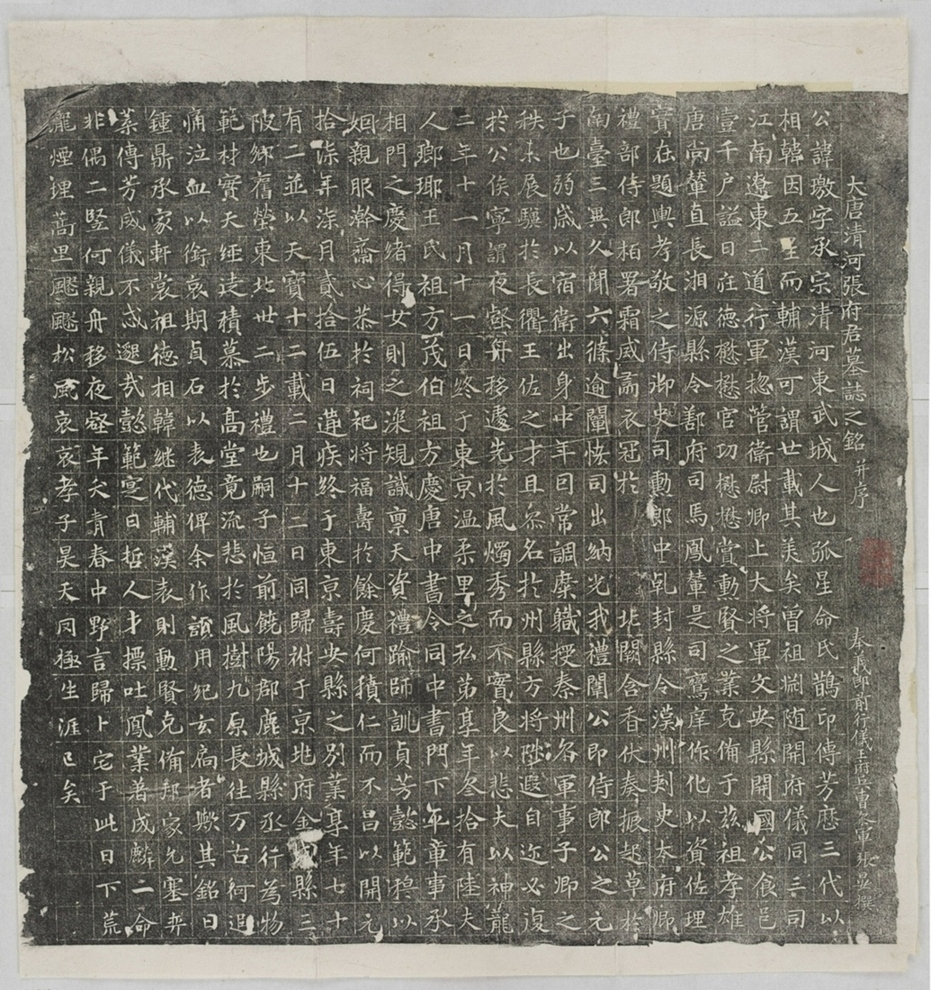 大唐清河張府君墓誌之銘并序
奉義郎前行儀王府兵曹參軍張晏撰
公諱璬字承宗清河東武城人也弧星命氏鵲印傳芳歷三代以
相韓因五星而輔漢可謂世載其美矣曾祖隨開府儀同三司
江南遼東二道行軍揔管衛尉卿上大將軍文安縣開國公食邑
壹千戶謚曰莊德懋懋官功懋懋賞勳賢之業克備于茲祖孝雄
唐尚輦直長湘源縣令鄯府司馬鳳輦是司鸞庠作化以資佐理
實在題輿考敬之侍御史司勳郎中乹封縣令漢州刺史本府卿
禮部侍郎栢署霜威肅衣冠於北闕含香伏奏振起草於
南臺三異久聞六條逾闡恡司出納光我禮闈公即侍郎公之元
子也弱歲以宿衛出身中年因常調糜軄授秦州叅軍事子卿之
秩未展驥於長衢王佐之才且叅名於州縣方將陟遐自迩必復
於公侯寧謂夜壑舟移遽先於風燭秀而不實良以悲夫以神龍
二年十一月十一日終于東京溫柔里之私第享年叁拾有陸夫
人瑯琊王氏祖方茂伯祖方慶唐中書令同中書門下平章事承
相門之慶緒得女則之深規識禀天資禮踰師訓貞芳懿範穆以
姻親服澣齋心恭於祠祀将福壽於餘慶何積仁而不昌以開元
拾柒年柒月貳拾伍日遘疾終于東京壽安縣之別業享年七十
有二並以天寶十二載二月十二日同歸祔于京兆府金城縣三
陂鄉舊塋東北卅二步禮也嗣子恒前饒陽郡鹿城縣丞行為物
範材實天經徒積慕於高堂竟流悲於風樹九原長往万古何追
痛泣血以銜哀期貞石以表德俾余作頌用紀玄扃者歟其銘曰
鍾鼎承家軒裳祖德相韓継代輔漢表則勳賢克備邦家允塞弈
葉傳芳威儀不忒邈哉懿範寔曰哲人才摽吐鳳業著成麟二命
非偶二竪何親舟移夜壑年夭青春中野言歸卜宅于此日下荒
隴煙埋蒿里飂飂松風哀哀孝子昊天罔極生涯已矣